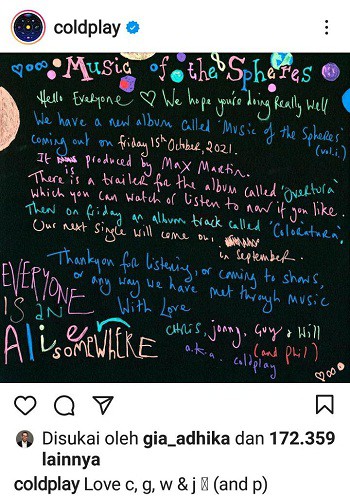 coldplay
Music of the Spheres
Hello Everyone ♡ We hope you're doing Really Well
We have a new album called 'Music of the Spheres' (vol.i.)
coming out on friday 15th October, 2021.
It is produced by Max Martin.
There is a trailer for the album called 'Overtura'
which you can watch or listen to now if you like.
Then on friday an album track called 'Coloratura'.
Our next single will come out
in September.
Thankyou for listening, or coming to shows,
or any way we have met through music
With Love
EVERYONE
IS an
Alien
somewhERE
CHRIS, jonny, Guy & Will
(and phil)
a.k.a. coldplay
Disukai oleh gia_adhika dan 172.359
lainnya
coldplay Love c, g, w & j (and p)